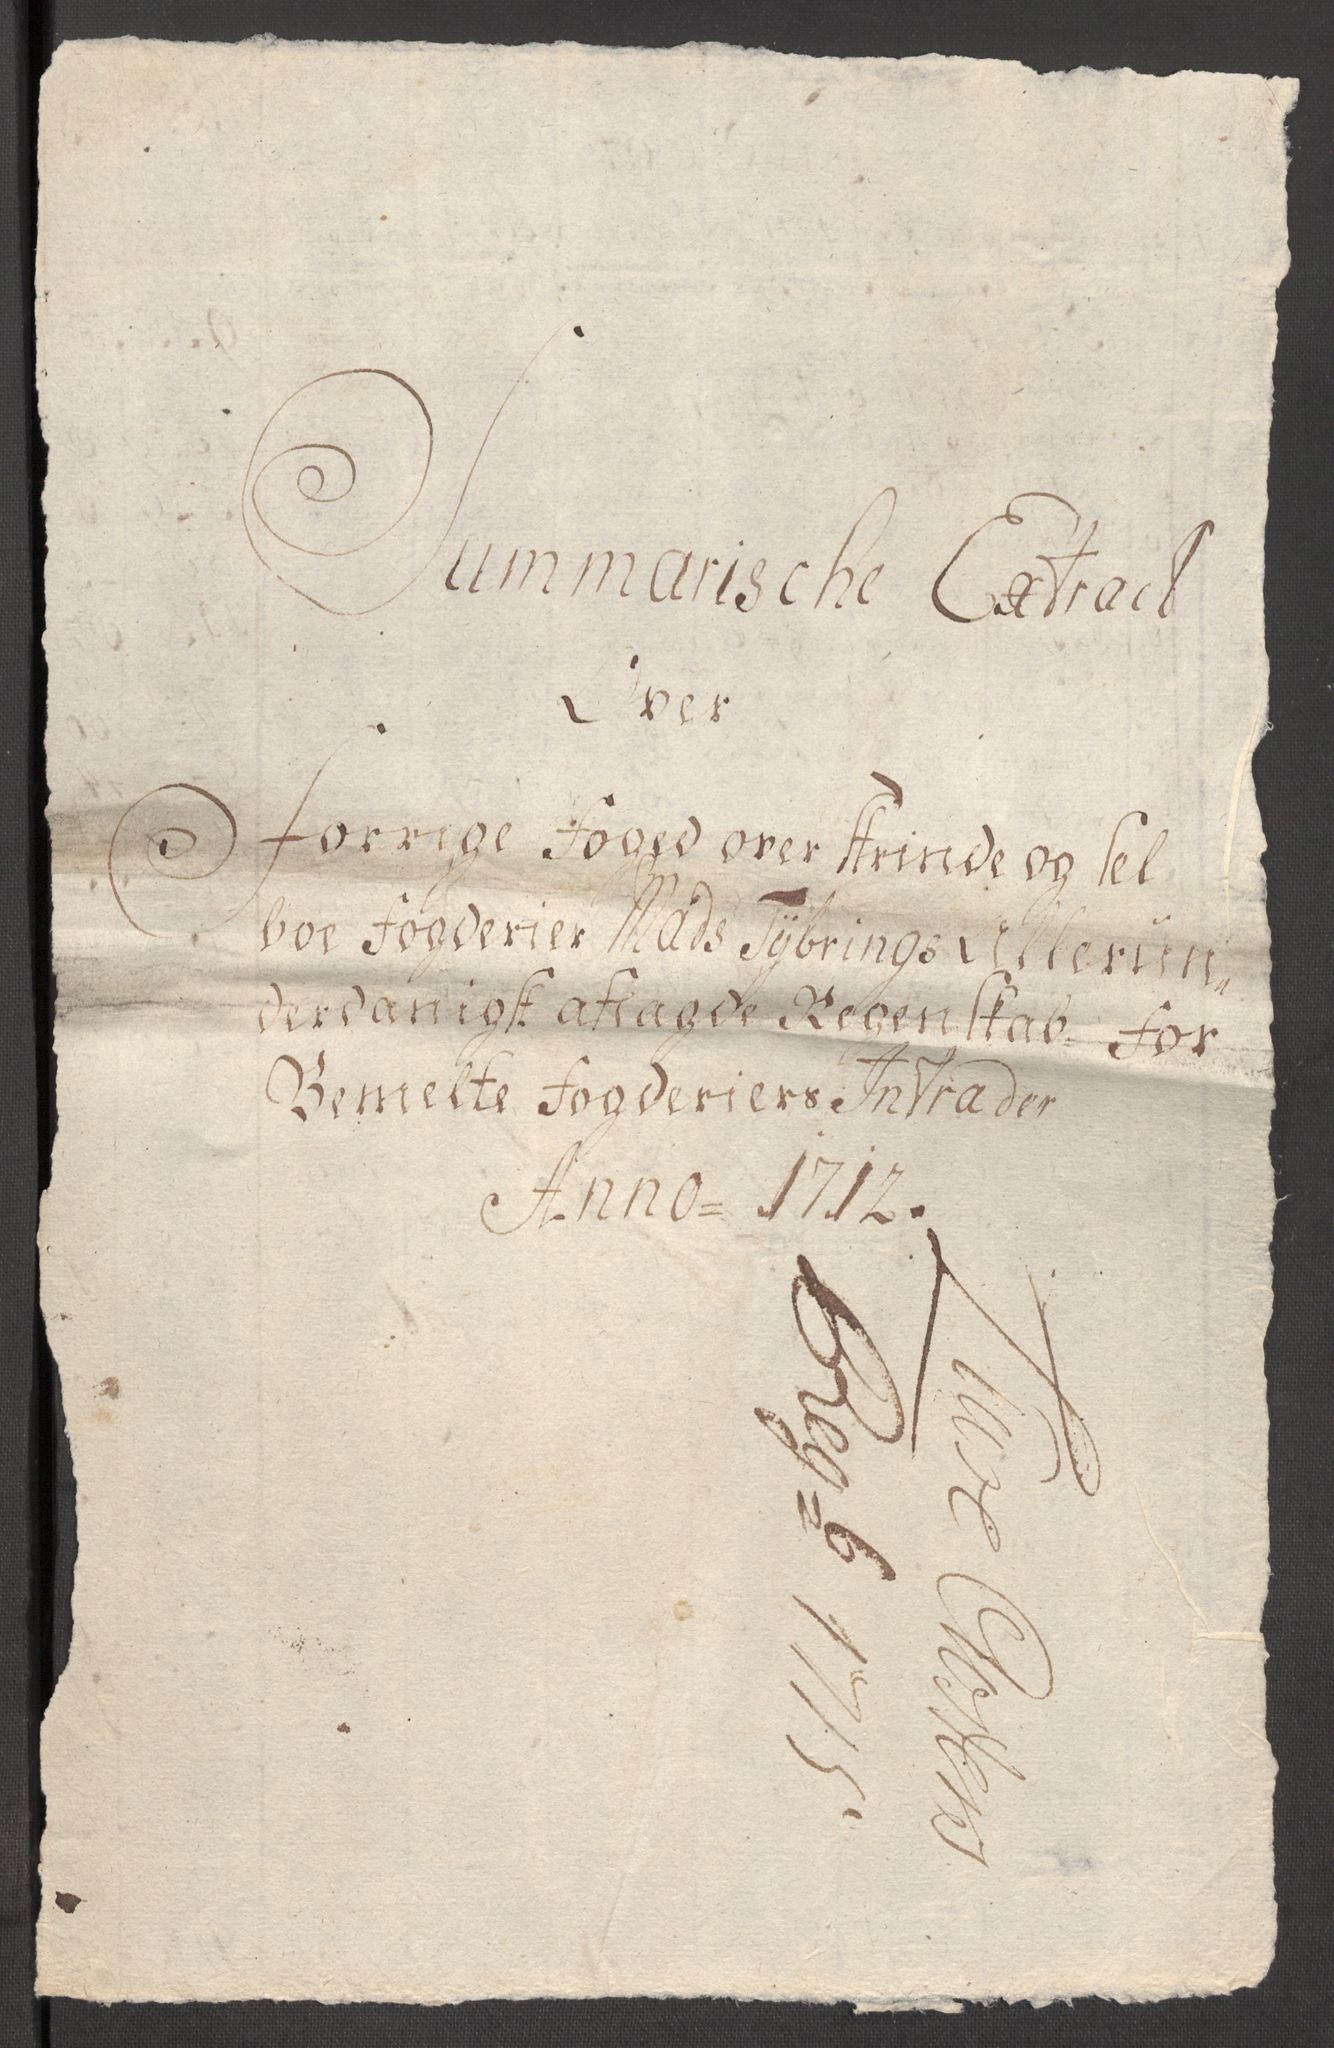 Summarische Extract
Over
forrige foged over strinde og sel
boe fogderier Mads Tÿbrings Allerün„
derdanigst aflagde Regenskab for
Bemelte fogderiers Intrader
Anno= 1712.
1715.